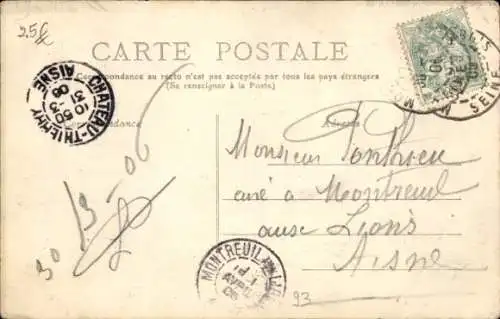 25f
CARTE POSTALE
Correspondance au recto n'est pas acceptée par tous les pays étrangers
(Se renseigner à la Poste)
CHATEAU-THIERRY
10 50
31-3
06
AISNE
PARIS
SEINE
Correspondance
Adresse
30-3-06
Monsieur
curé à Montreuil
aux Lions
Aisne
MONTREUIL-AUX-LIONS
1
AVRIL
06
93